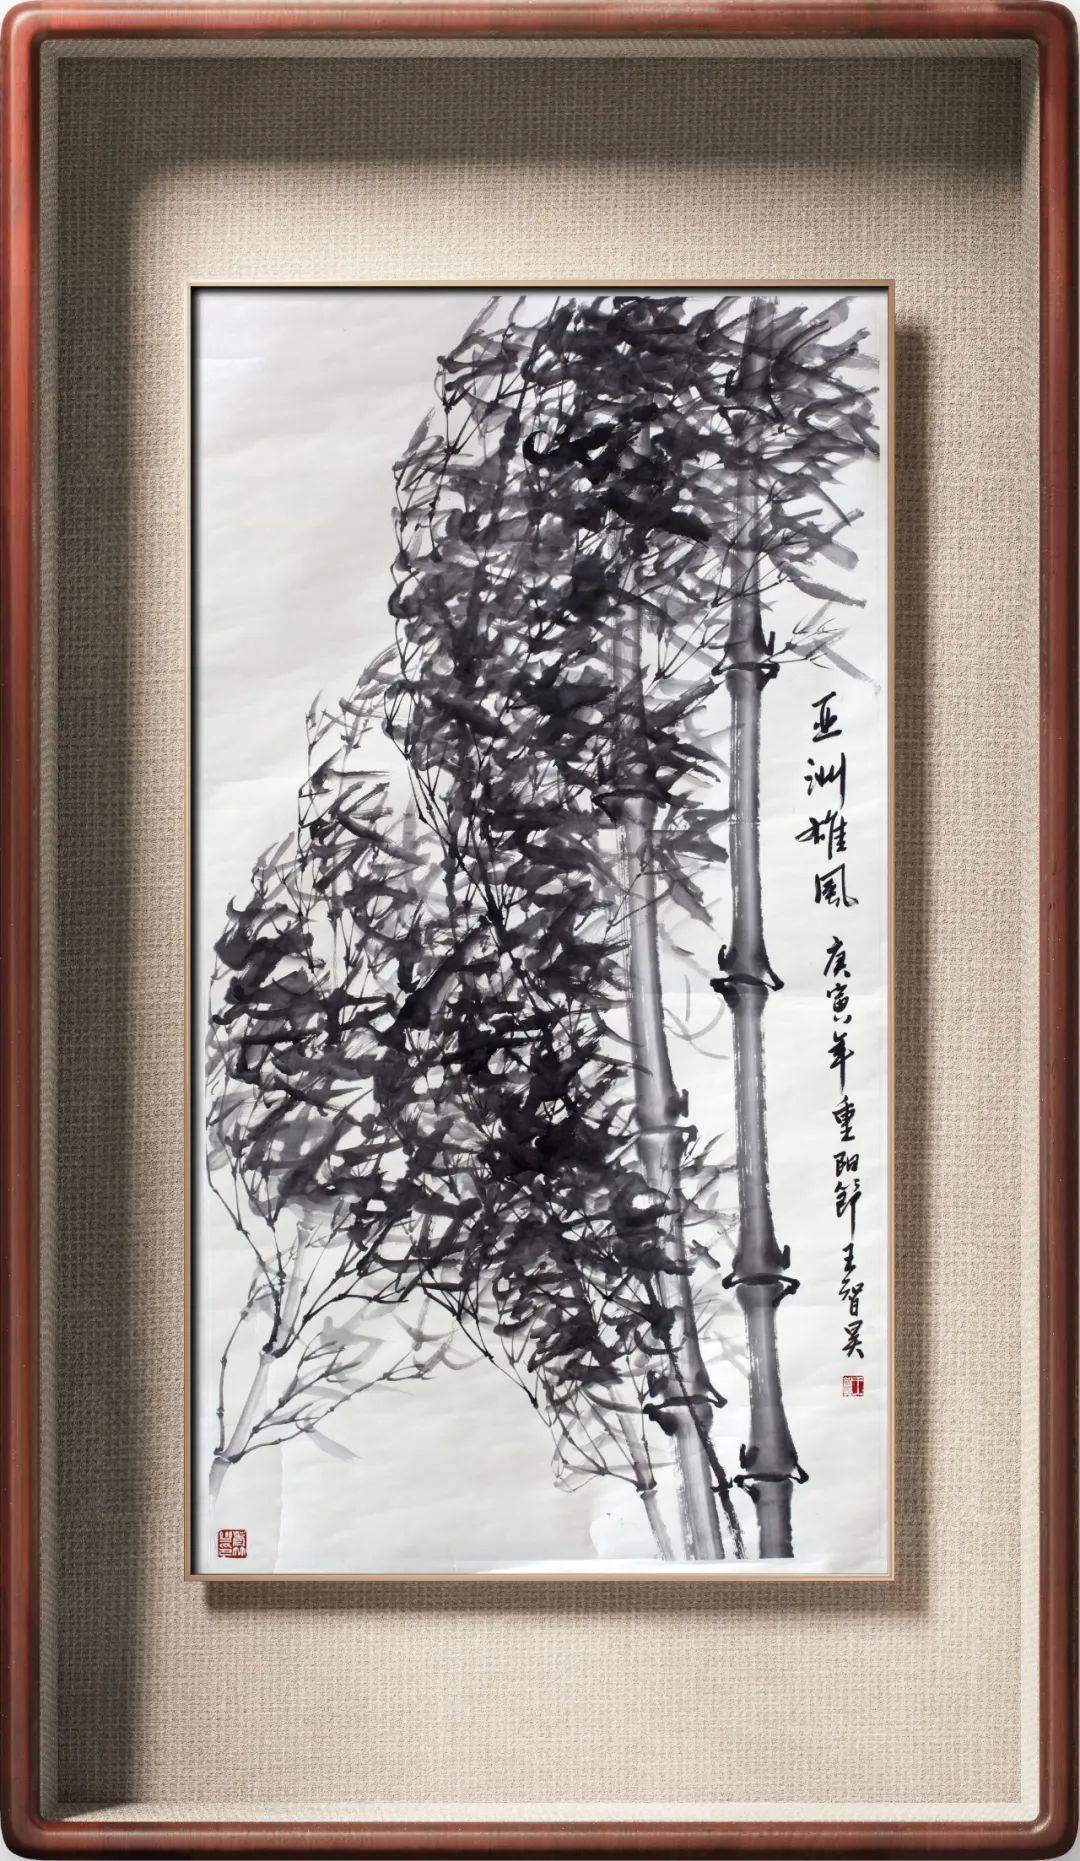 亚洲雄風
庚寅年重阳節王智昊